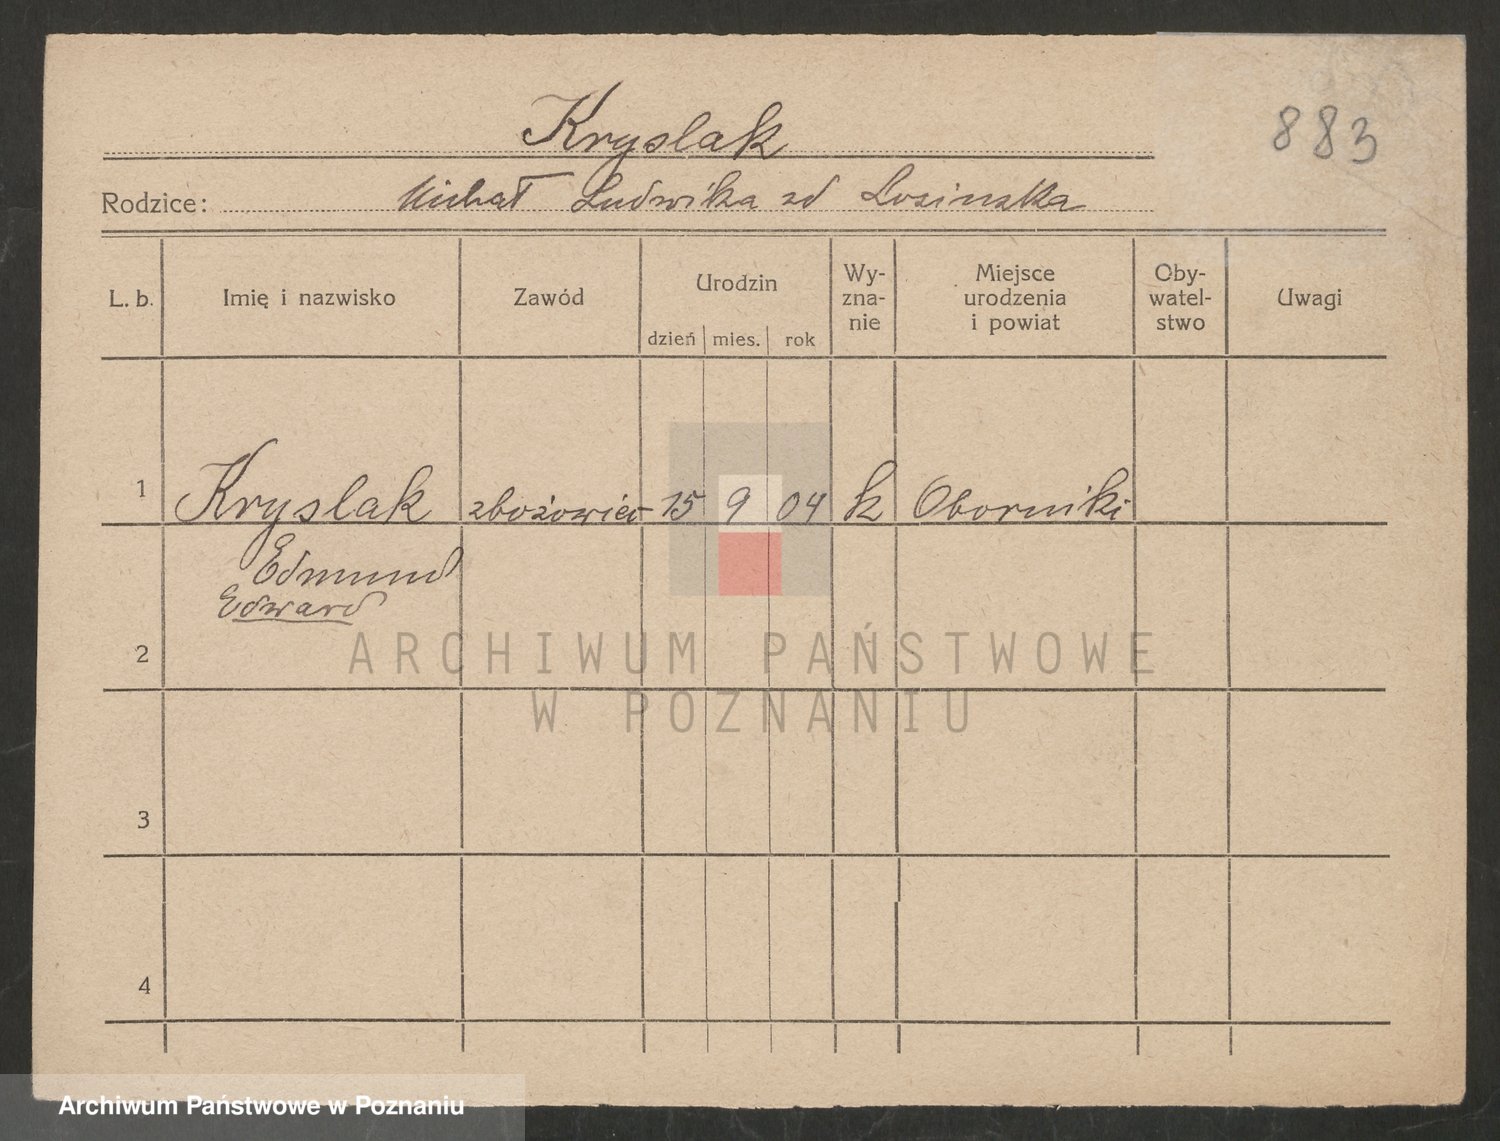 883
Kryslak
Rodzice: Michał Ludwika zd Losinska
L. b. Imię i nazwisko Zawód Urodzin Wy-zna-nie Miejsce urodzenia i powiat Oby-watel-stwo Uwagi
dzień mies. rok
1 Kryslak zbożowiec 15 9 04 k Oborniki
Edmund
Edward
2
3
4
ARCHIWUM PAŃSTWOWE
W POZNANIU
Archiwum Państwowe w Poznaniu